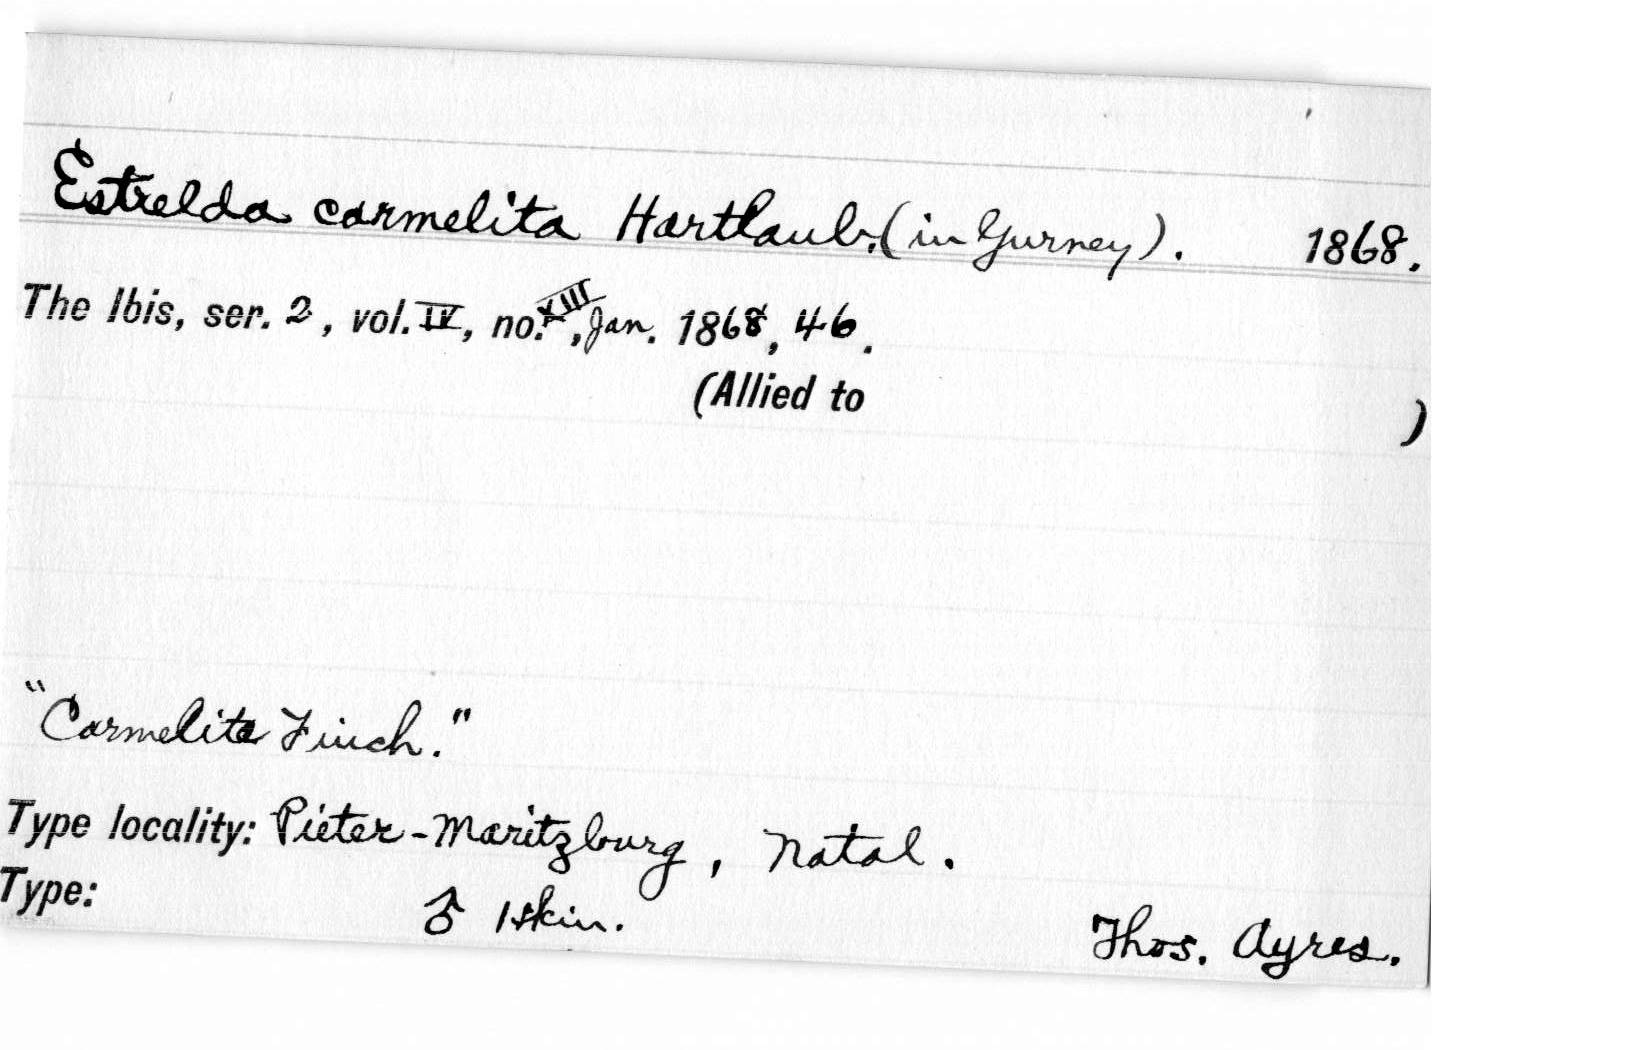 Estrelda carmelita Hartlaub. (in Gurney). 1868.
The Ibis, ser. 2, vol. IV, no. XIII, Jan. 1868, 46.
(Allied to )
"Carmelita Finch."
Type locality: Pieter-Maritzburg, Natal.
Type: ♂ 1 skin. Thos. Ayres.